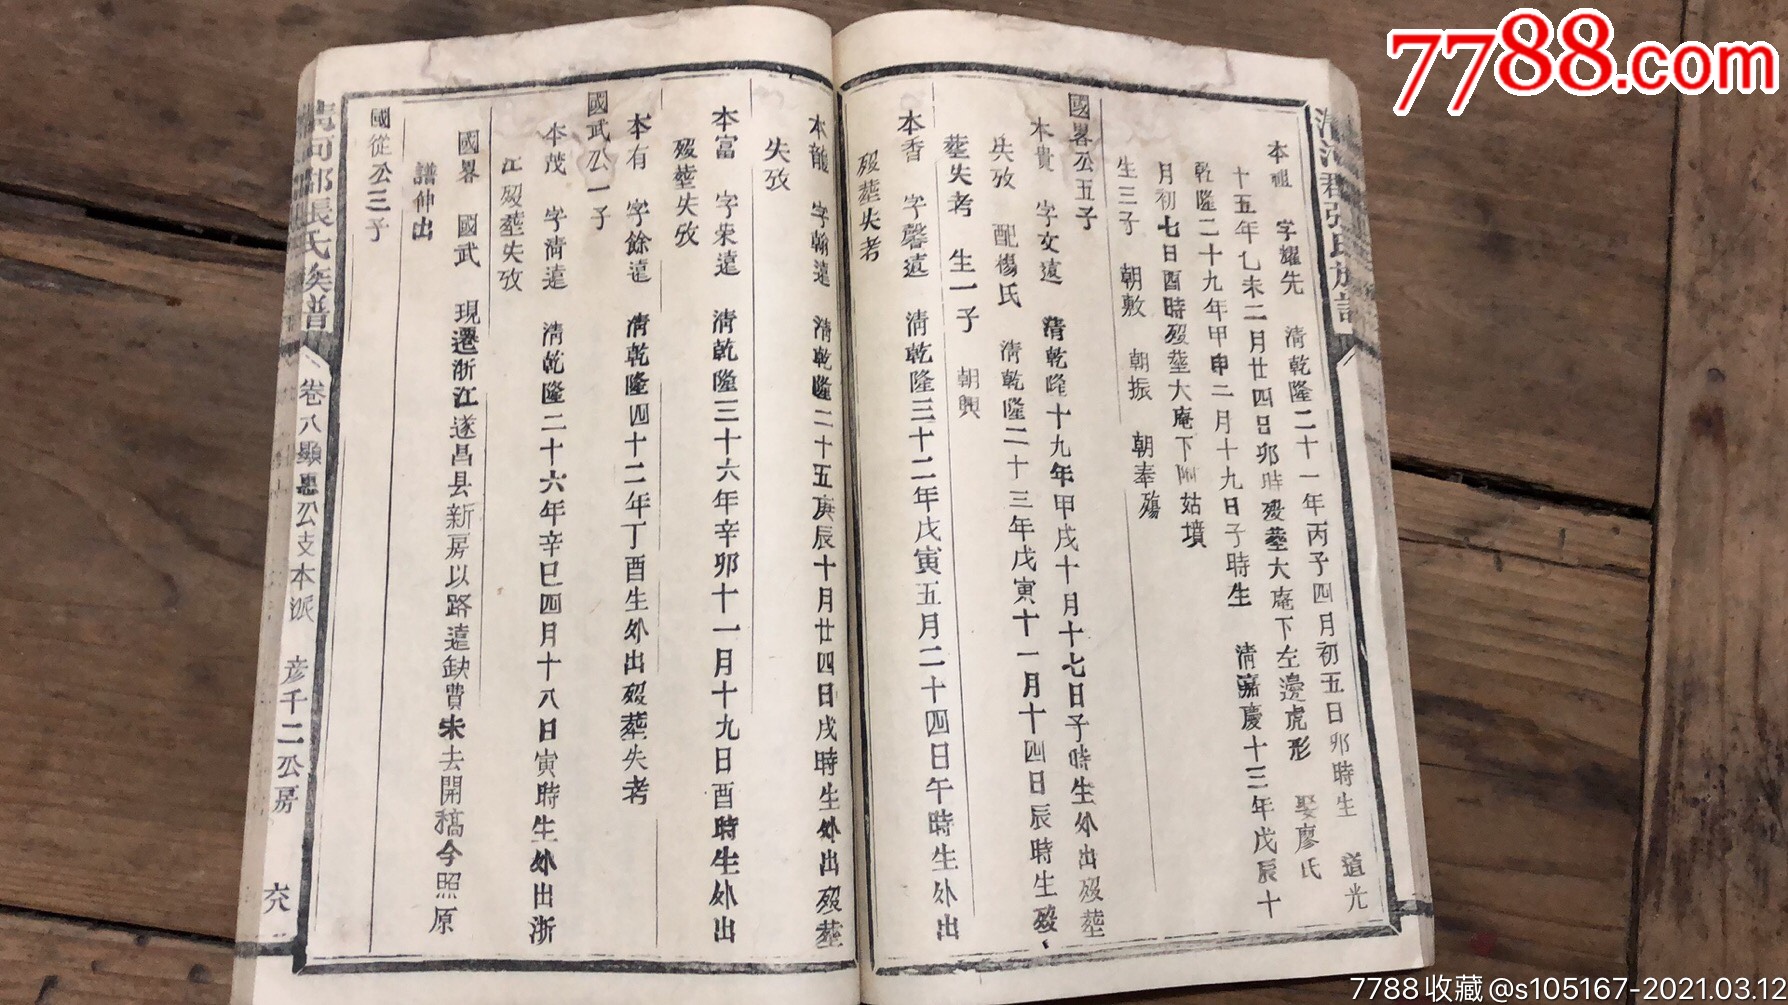 7788.com
清河郡張氏族譜
本祖 字耀先 清乾隆二十一年丙子四月初五日卯時生 道光
十五年乙未二月廿四日卯時歿塟大庵下左邊虎形 娶廖氏
乾隆二十九年甲申二月十九日子時生 清嘉慶十三年戊辰十
月初七日酉時歿塟大庵下 姑墳
生三子 朝敷 朝振 朝奉殤
國畧公五子
本貴 字文遠 清乾隆十九年甲戌十月十七日子時生外出歿塟
失攷 配楊氏 清乾隆二十三年戊寅十一月十四日辰時生歿
塟失考 生一子 朝興
本香 字馨遠 清乾隆三十二年戊寅五月二十四日午時生外出
歿塟失考
本龍 字翰遠 清乾隆二十五庚辰十月廿四日戌時生外出歿塟
失攷
本富 字朱遠 清乾隆三十六年辛卯十一月十九日酉時生外出
歿塟失攷
本有 字餘遠 清乾隆四十二年丁酉生外出歿塟失考
國武公一子
本茂 字清遠 清乾隆二十六年辛巳四月十八日寅時生外出浙
江歿塟失攷
國畧 國武 現遷浙江遂昌县新房以路遠缺費未去開稿今照原
譜伸出
國從公三子
清河郡張氏族譜 卷八顯惠公支本派 彦千二公房
7788收藏@s105167-2021.03.12